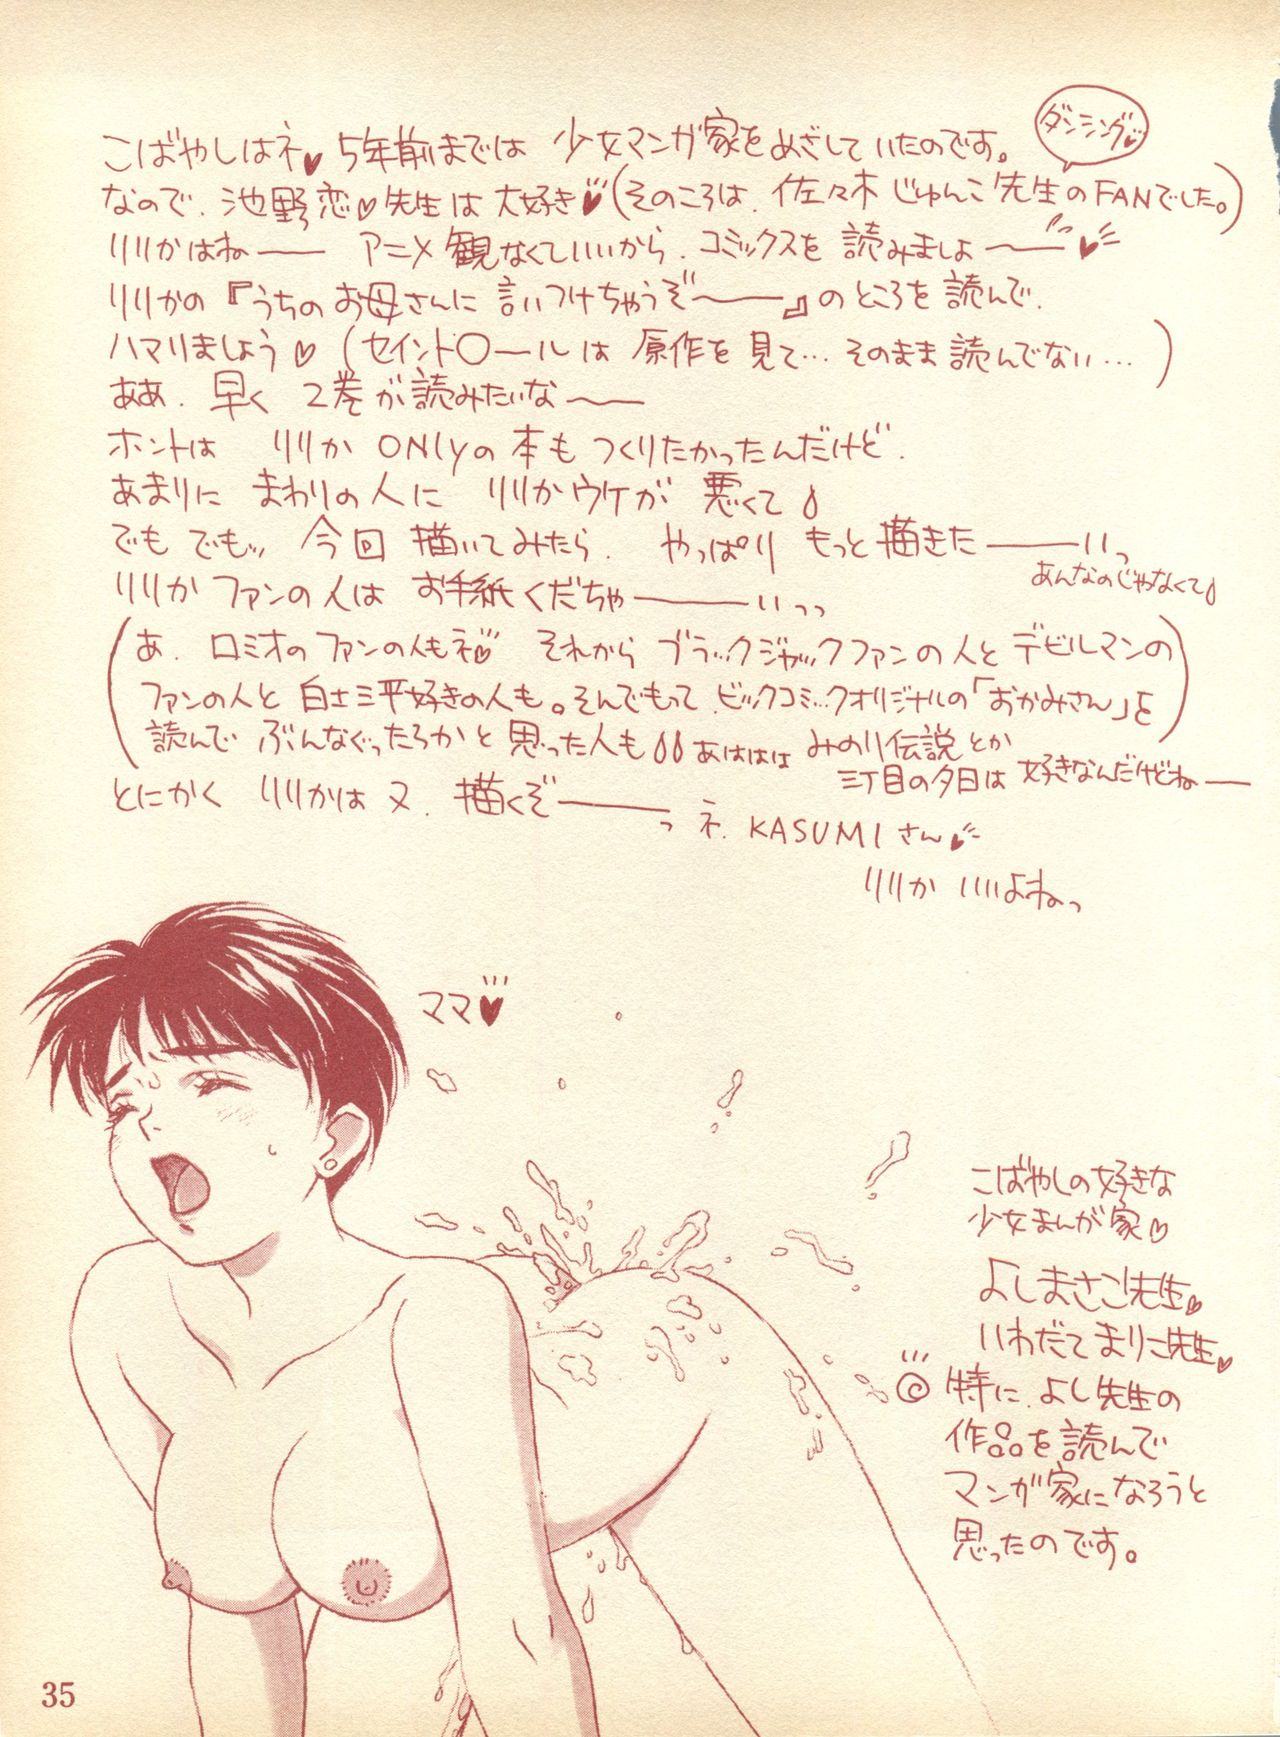 こばやしはネ♥5年前までは 少女マンガ家をめざしていたのです。
ダンシング♥
なので、池野恋♡先生は大好き♥(そのころは、佐々木じゅんこ先生のFANでした。)
リリかはねー アニメ観なくていいから、コミックスを読みましょー♥
リリかの『うちのお母さんに言いつけちゃうぞー』のところを読んで、
ハマりましょう♡(セイント〇ールは原作を見て…そのまま読んでない…)
ああ、早く2巻が読みたいなー
ホントは リリか ONlyの本もつくりたかったんだけど、
あまりに まわりの人に リリかウケが 悪くて
でも でもッ 今回 描いてみたら、やっぱり もっと描きたーいっ
あんなのじゃなくて
リリか ファンの人は お手紙くだちゃーいっっ
(あ、ロミオのファンの人もネ♡ それから ブラックジャックファンの人と デビルマンの
ファンの人と 白土三平好きの人も。そんでもって、ビックコミックオリジナルの「おかみさん」を
読んで ぶんなぐったろかと 思った人も)
あははは みのり伝説とか
三丁目の夕日は 好きなんだけどねー
とにかく リリかは 又、描くぞーっ ネ、KASUMIさん♥
リリか いいよねっ
ママ♥
こばやしの好きな
少女まんが家♡
よしまさこ先生♡
いわだてまりこ先生♡
◎特に、よし先生の
作品を読んで
マンガ家になろうと
思ったのです。
35